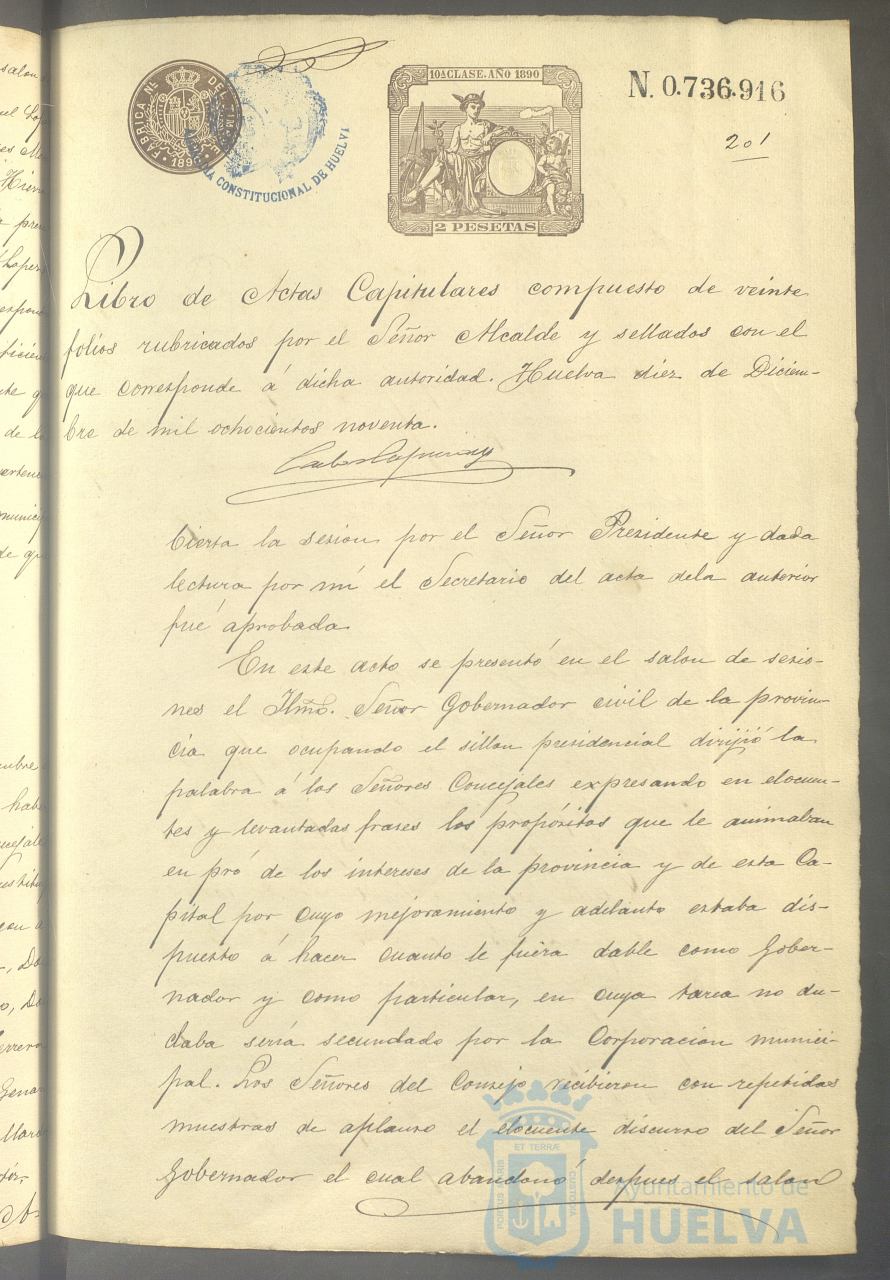 FABRICA NL. DEL TIMBRE
1890
ALCALDIA CONSTITUCIONAL DE HUELVA
10A CLASE. AÑO 1890
2 PESETAS
N. 0.736.916
201
Libro de Actas Capitulares compuesto de veinte
folios rubricados por el Señor Alcalde y sellados con el
que corresponde á dicha autoridad. Huelva diez de Diciem-
bre de mil ochocientos noventa.
bierta la sesion por el Señor Presidente y dada
lectura por mí el Secretario del acta dela anterior
fué aprobada
En este acto se presentó en el salon de sesio-
nes el Iltmo. Señor Gobernador civil de la provin-
cia que ocupando el sillon presidencial dirijió la
palabra á los Señores Concejales expresando en elocuen-
tes y levantadas frases los propósitos que le animaban
en pró de los intereses de la provincia y de esta Ca-
pital por cuyo mejoramiento y adelanto estaba dis-
puesto á hacer cuanto le fuera dable como Gober-
nador y como particular, en cuya tarea no du-
daba sería secundado por la Corporacion munici-
pal. Los Señores del Consejo recibieron con repetidas
muestras de aplauso el elocuente discurso del Señor
Gobernador el cual abandonó despues el salon
PORTUS MARIS
ET TERRÆ
CUSTODIA
Ayuntamiento de
HUELVA